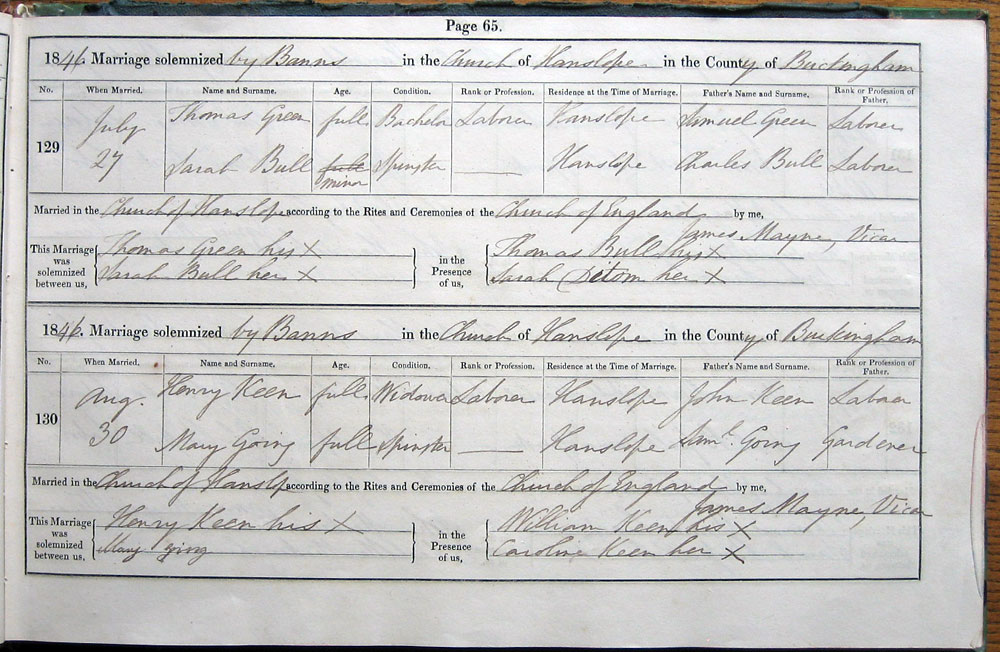 Page 65.
1846. Marriage solemnized by Banns in the Church of Hanslope in the County of Buckingham
No. When Married. Name and Surname. Age. Condition. Rank or Profession. Residence at the Time of Marriage. Father's Name and Surname. Rank or Profession of Father.
129 July 27 Thomas Green full Bachelor Laborer Hanslope Samuel Green Laborer
Sarah Bull full minor Spinster — Hanslope Charles Bull Laborer
Married in the Church of Hanslope according to the Rites and Ceremonies of the Church of England by me,
James Mayne, Vicar
This Marriage was solemnized between us, Thomas Green his X in the Presence of us, Thomas Bull his X
Sarah Bull her X Sarah her X
1846. Marriage solemnized by Banns in the Church of Hanslope in the County of Buckingham
No. When Married. Name and Surname. Age. Condition. Rank or Profession. Residence at the Time of Marriage. Father's Name and Surname. Rank or Profession of Father.
130 Aug. 30 Henry Keen full Widower Laborer Hanslope John Keen Laborer
Mary Going full Spinster — Hanslope Saml. Going Gardener
Married in the Church of Hanslope according to the Rites and Ceremonies of the Church of England by me,
James Mayne, Vicar
This Marriage was solemnized between us, Henry Keen his X in the Presence of us, William Keen his X
Mary going Caroline Keen her X